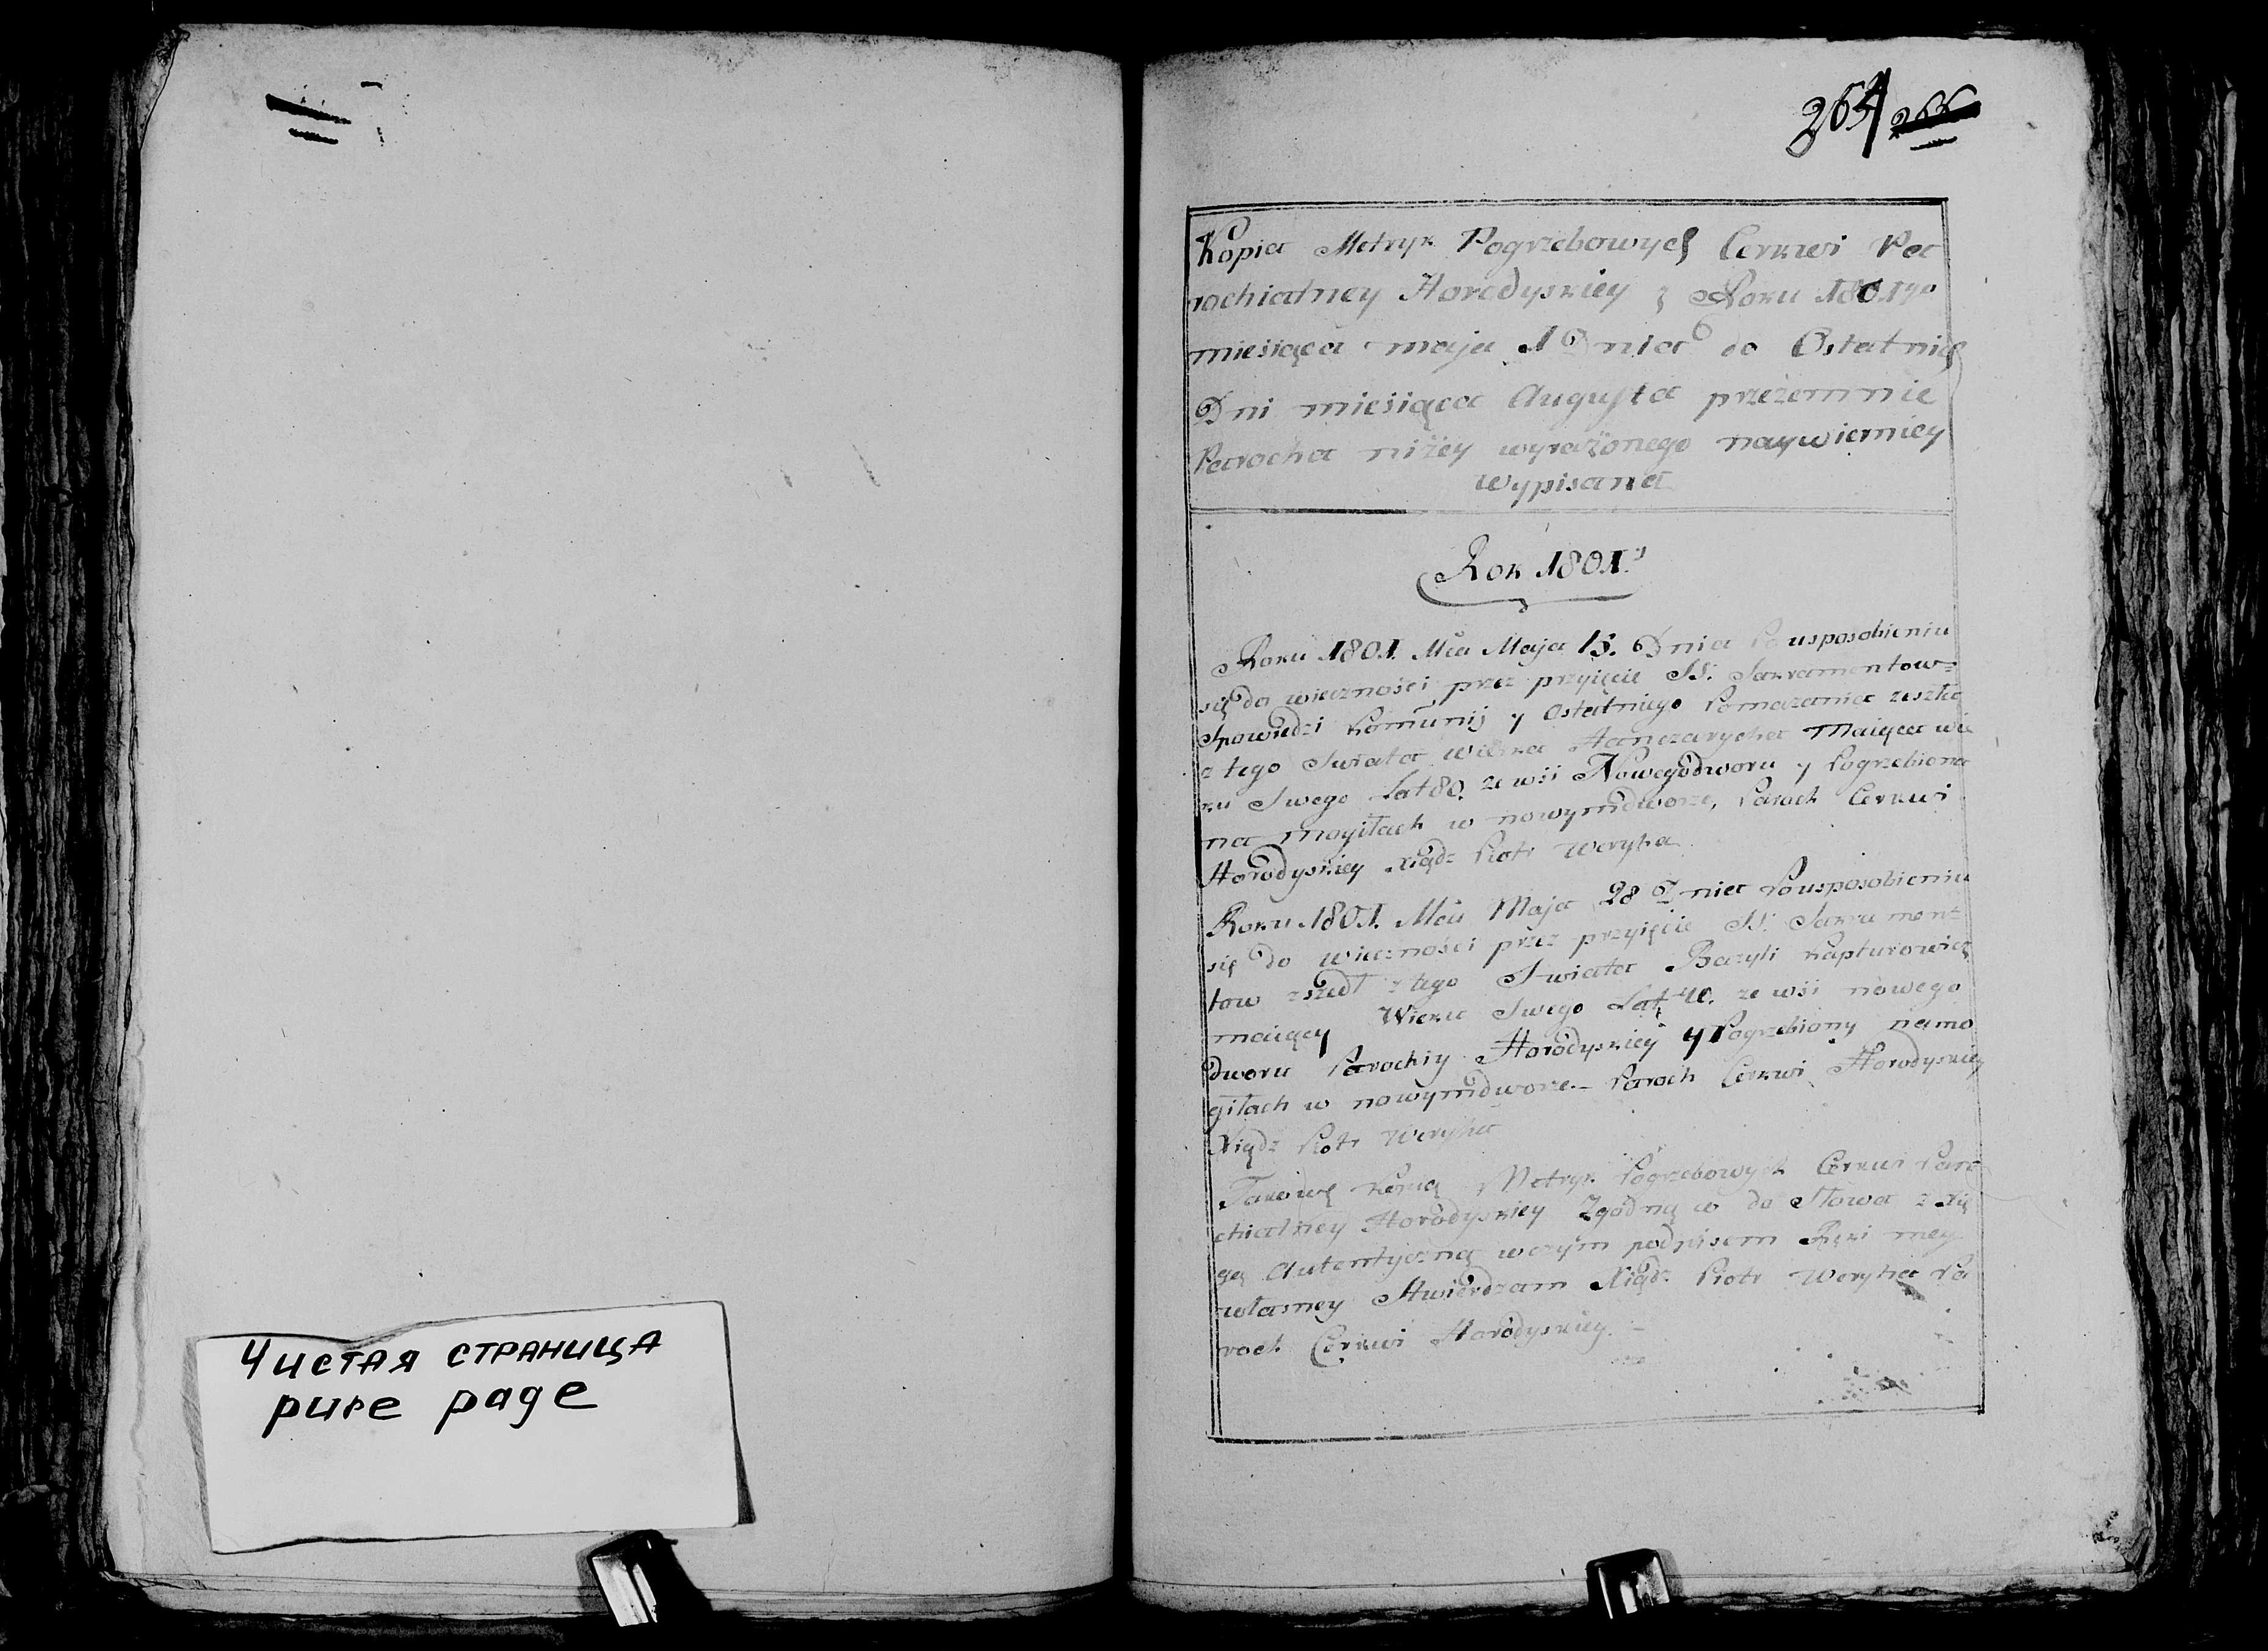 Чистая страница
pure page
264 266
Kopia Metryk Pogrzebowych Cerkwi Pa
rochialney Horodyskiey z Roku 1801go
miesiąca maja 1 Dnia do Ostatnich
Dni miesiąca Augusta przezemnie
Parocha niżey wyrażonego naywierniey
wypisana
Rok 1801.
Roku 1801. Mca Maja 15. Dnia Po usposobieniu
się do wieczności przez przyięcie SS. Sakramentow
Spowiedzi Kommunij y Ostatniego Pomazania zeszła
z tego Swiata Hanczarycha Maiąca wie
ku Swego Lat 80. ze wsi Nowegodworu y Pogrzebiona
na mogiłach w nowymdworze, Paroch Cerkwi
Horodyskiey Xiądz Piotr Weryha
Roku 1801. Mca Maja 28 Dnia Po usposobieniu
się do wieczności przez przyięcie SS. Sakramen
tow zszedł z tego Swiata Bazyli Kapturowicz
maiący Wieku Swego Lat 40. ze wsi nowego
dworu Parochiy Horodyskiey y Pogrzebiony na mo
giłach w nowymdworze. Paroch Cerkwi Horodyskiey
Xiądz Piotr Weryha
Takową Kopią Metryk Pogrzebowych Cerkwi Paro
chialney Horodyskiey Zgodną co do Słowa z Xię
gą Autentyczną w czym podpisem Ręki mey
własney Stwierdzam Xiądz Piotr Weryha Pa
roch Cerkwi Horodyskiey.